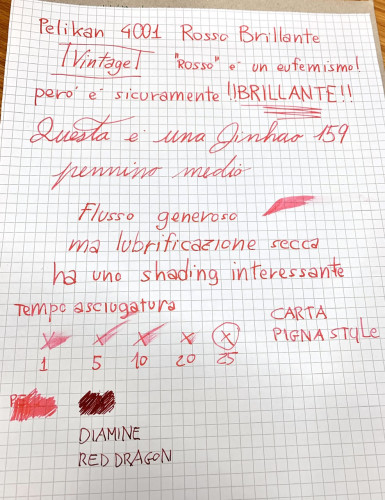 Pelikan 4001 Rosso Brillante
|Vintage| "Rosso" e' un eufemismo!
pero' e' sicuramente !!BRILLANTE!!
Questa è una Jinhao 159
pennino medio
Flusso generoso
ma lubrificazione secca
ha uno shading interessante
Tempo asciugatura
X X X X X
1 5 10 20 25
CARTA
PIGNA STYLE
DIAMINE
RED DRAGON